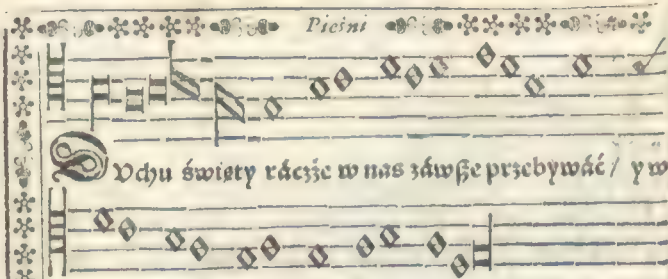 Pieśni
DVchu święty rácżże w nas záwße przebywáć / y w